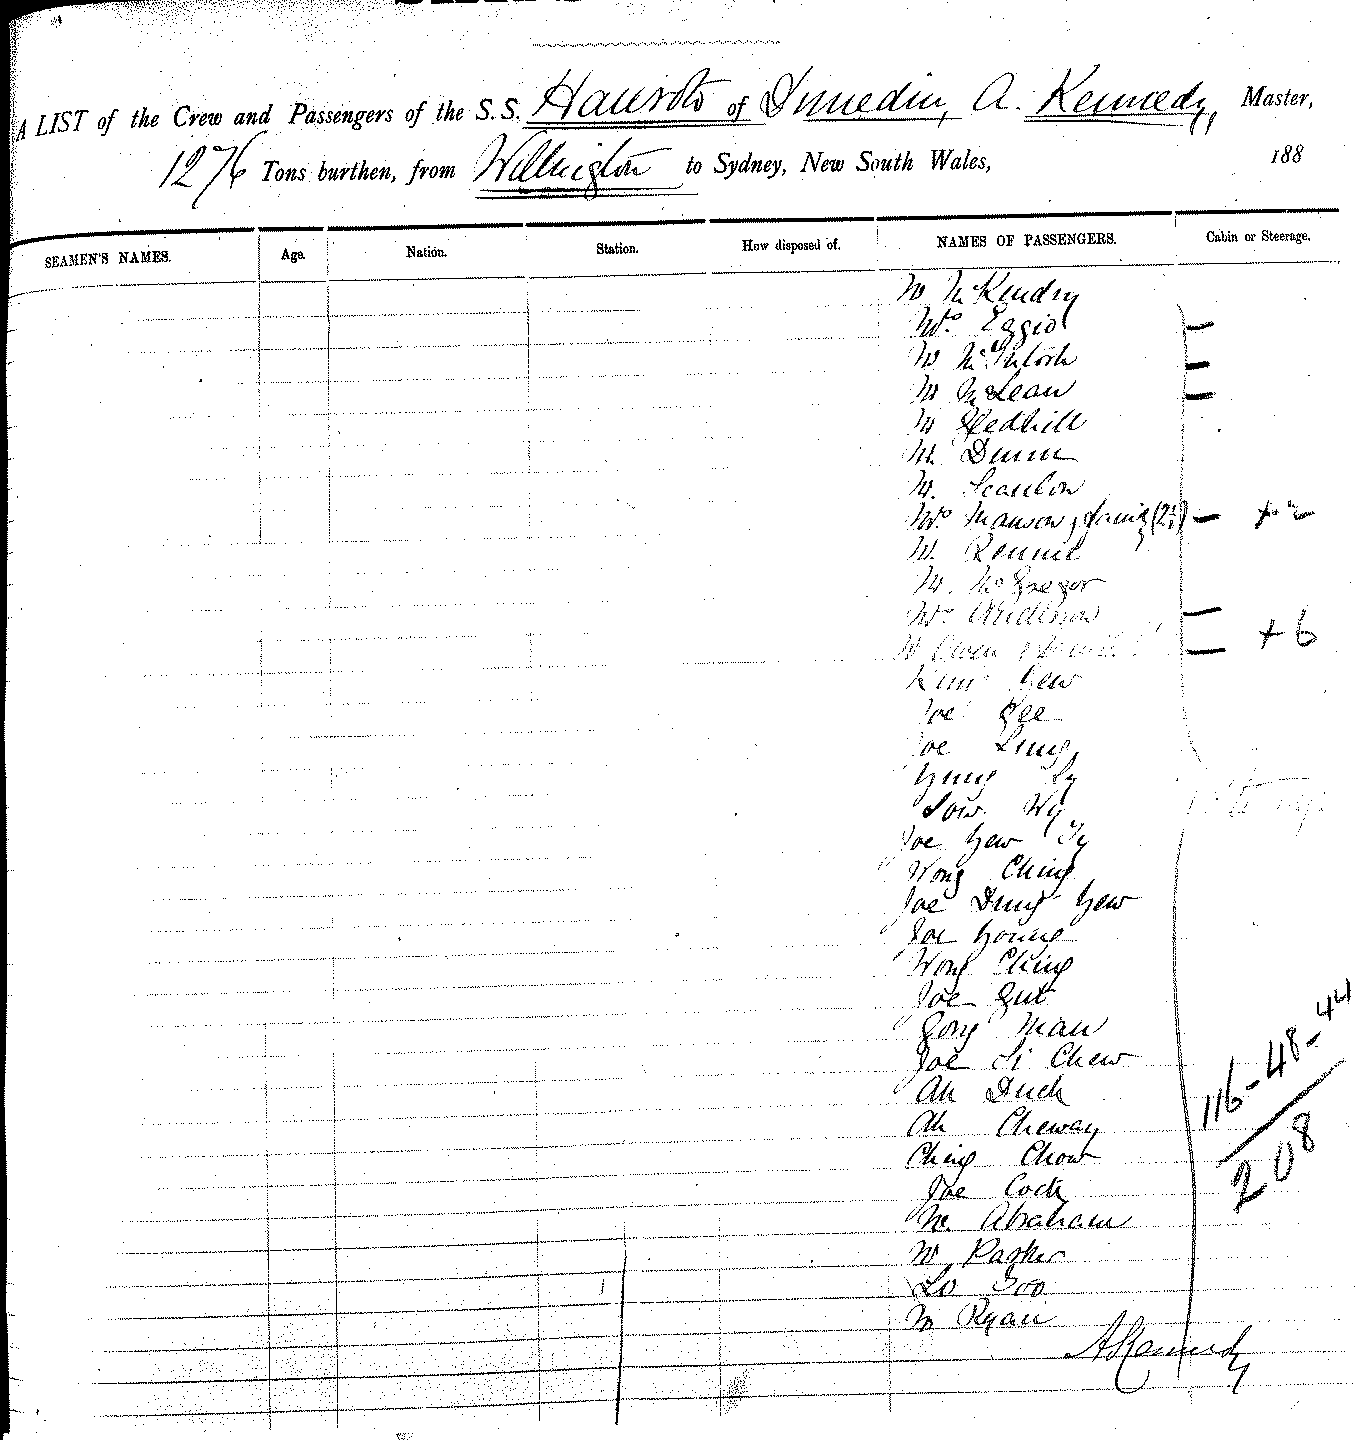 A LIST of the Crew and Passengers of the S.S. Hauroto of Dunedin, A. Kennedy, Master,
1276 Tons burthen, from Wellington to Sydney, New South Wales, 188
SEAMEN'S NAMES. Age. Nation. Station. How disposed of. NAMES OF PASSENGERS. Cabin or Steerage.
Mr McKendry
Mrs Eggio
Mr McIntosh
Mr McLean
Mr Redhill
Mr Dunn
Mr. Scanlon
Mrs Manson & family (2) + 2
Mr. Rennie
Mr. McGregor
Mrs Anderson
Mr Owen + 6
Kum Yew
Joe Gee
Joe Lung
Yung Sy
Low Wy
Joe Yew Ty
Wong Ching
Joe Dung Yew
Joe Young
Wong Ching
Joe Gut
Gong Man
Joe Si Chew
Ah Duck
Ah Cheway
Ching Chow
Joe Cock
Mr. Abraham
Mr Parker
Lo Goo
Mr Ryan
116-48-44
208
A Kennedy